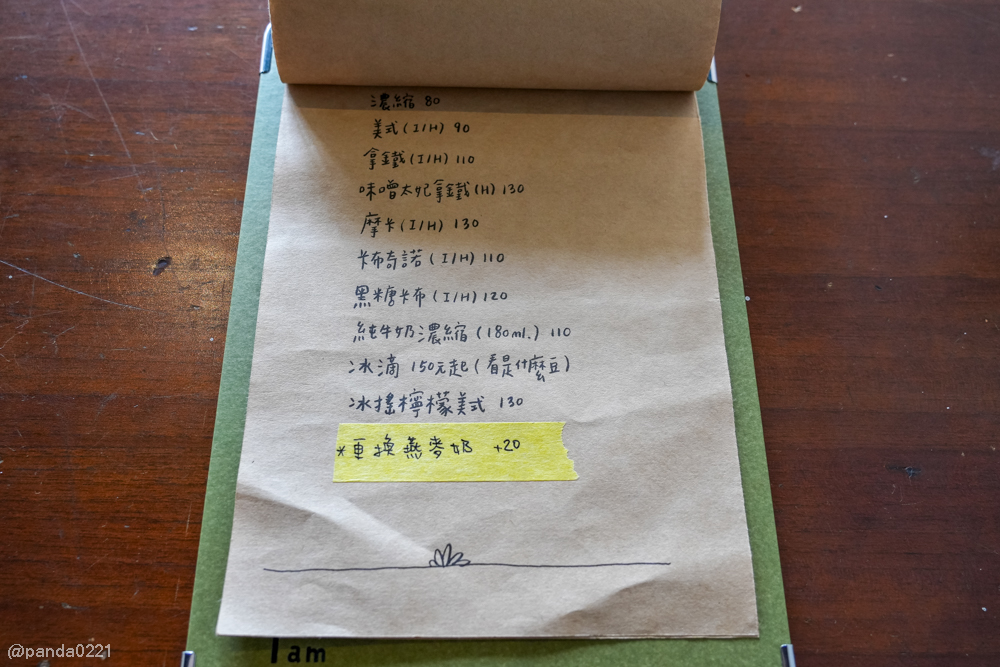 濃縮 80
美式(I/H) 90
拿鐵(I/H) 110
味噌太妃拿鐵(H) 130
摩卡(I/H) 130
卡布奇諾(I/H) 110
黑糖卡布(I/H) 120
純牛奶濃縮(180ml.) 110
冰滴 150元起(看是什麼豆)
冰搖檸檬美式 130
*更換燕麥奶 +20
I am
@panda0221